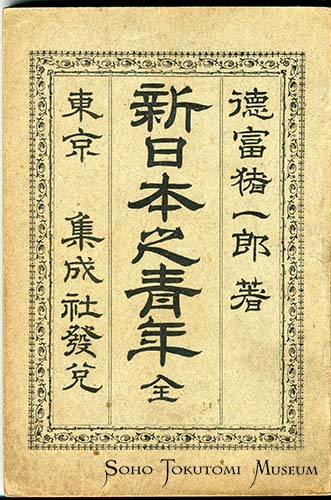 德富猪一郎 著
新日本之青年 全
東京 集成社發兌
SOHO TOKUTOMI MUSEUM